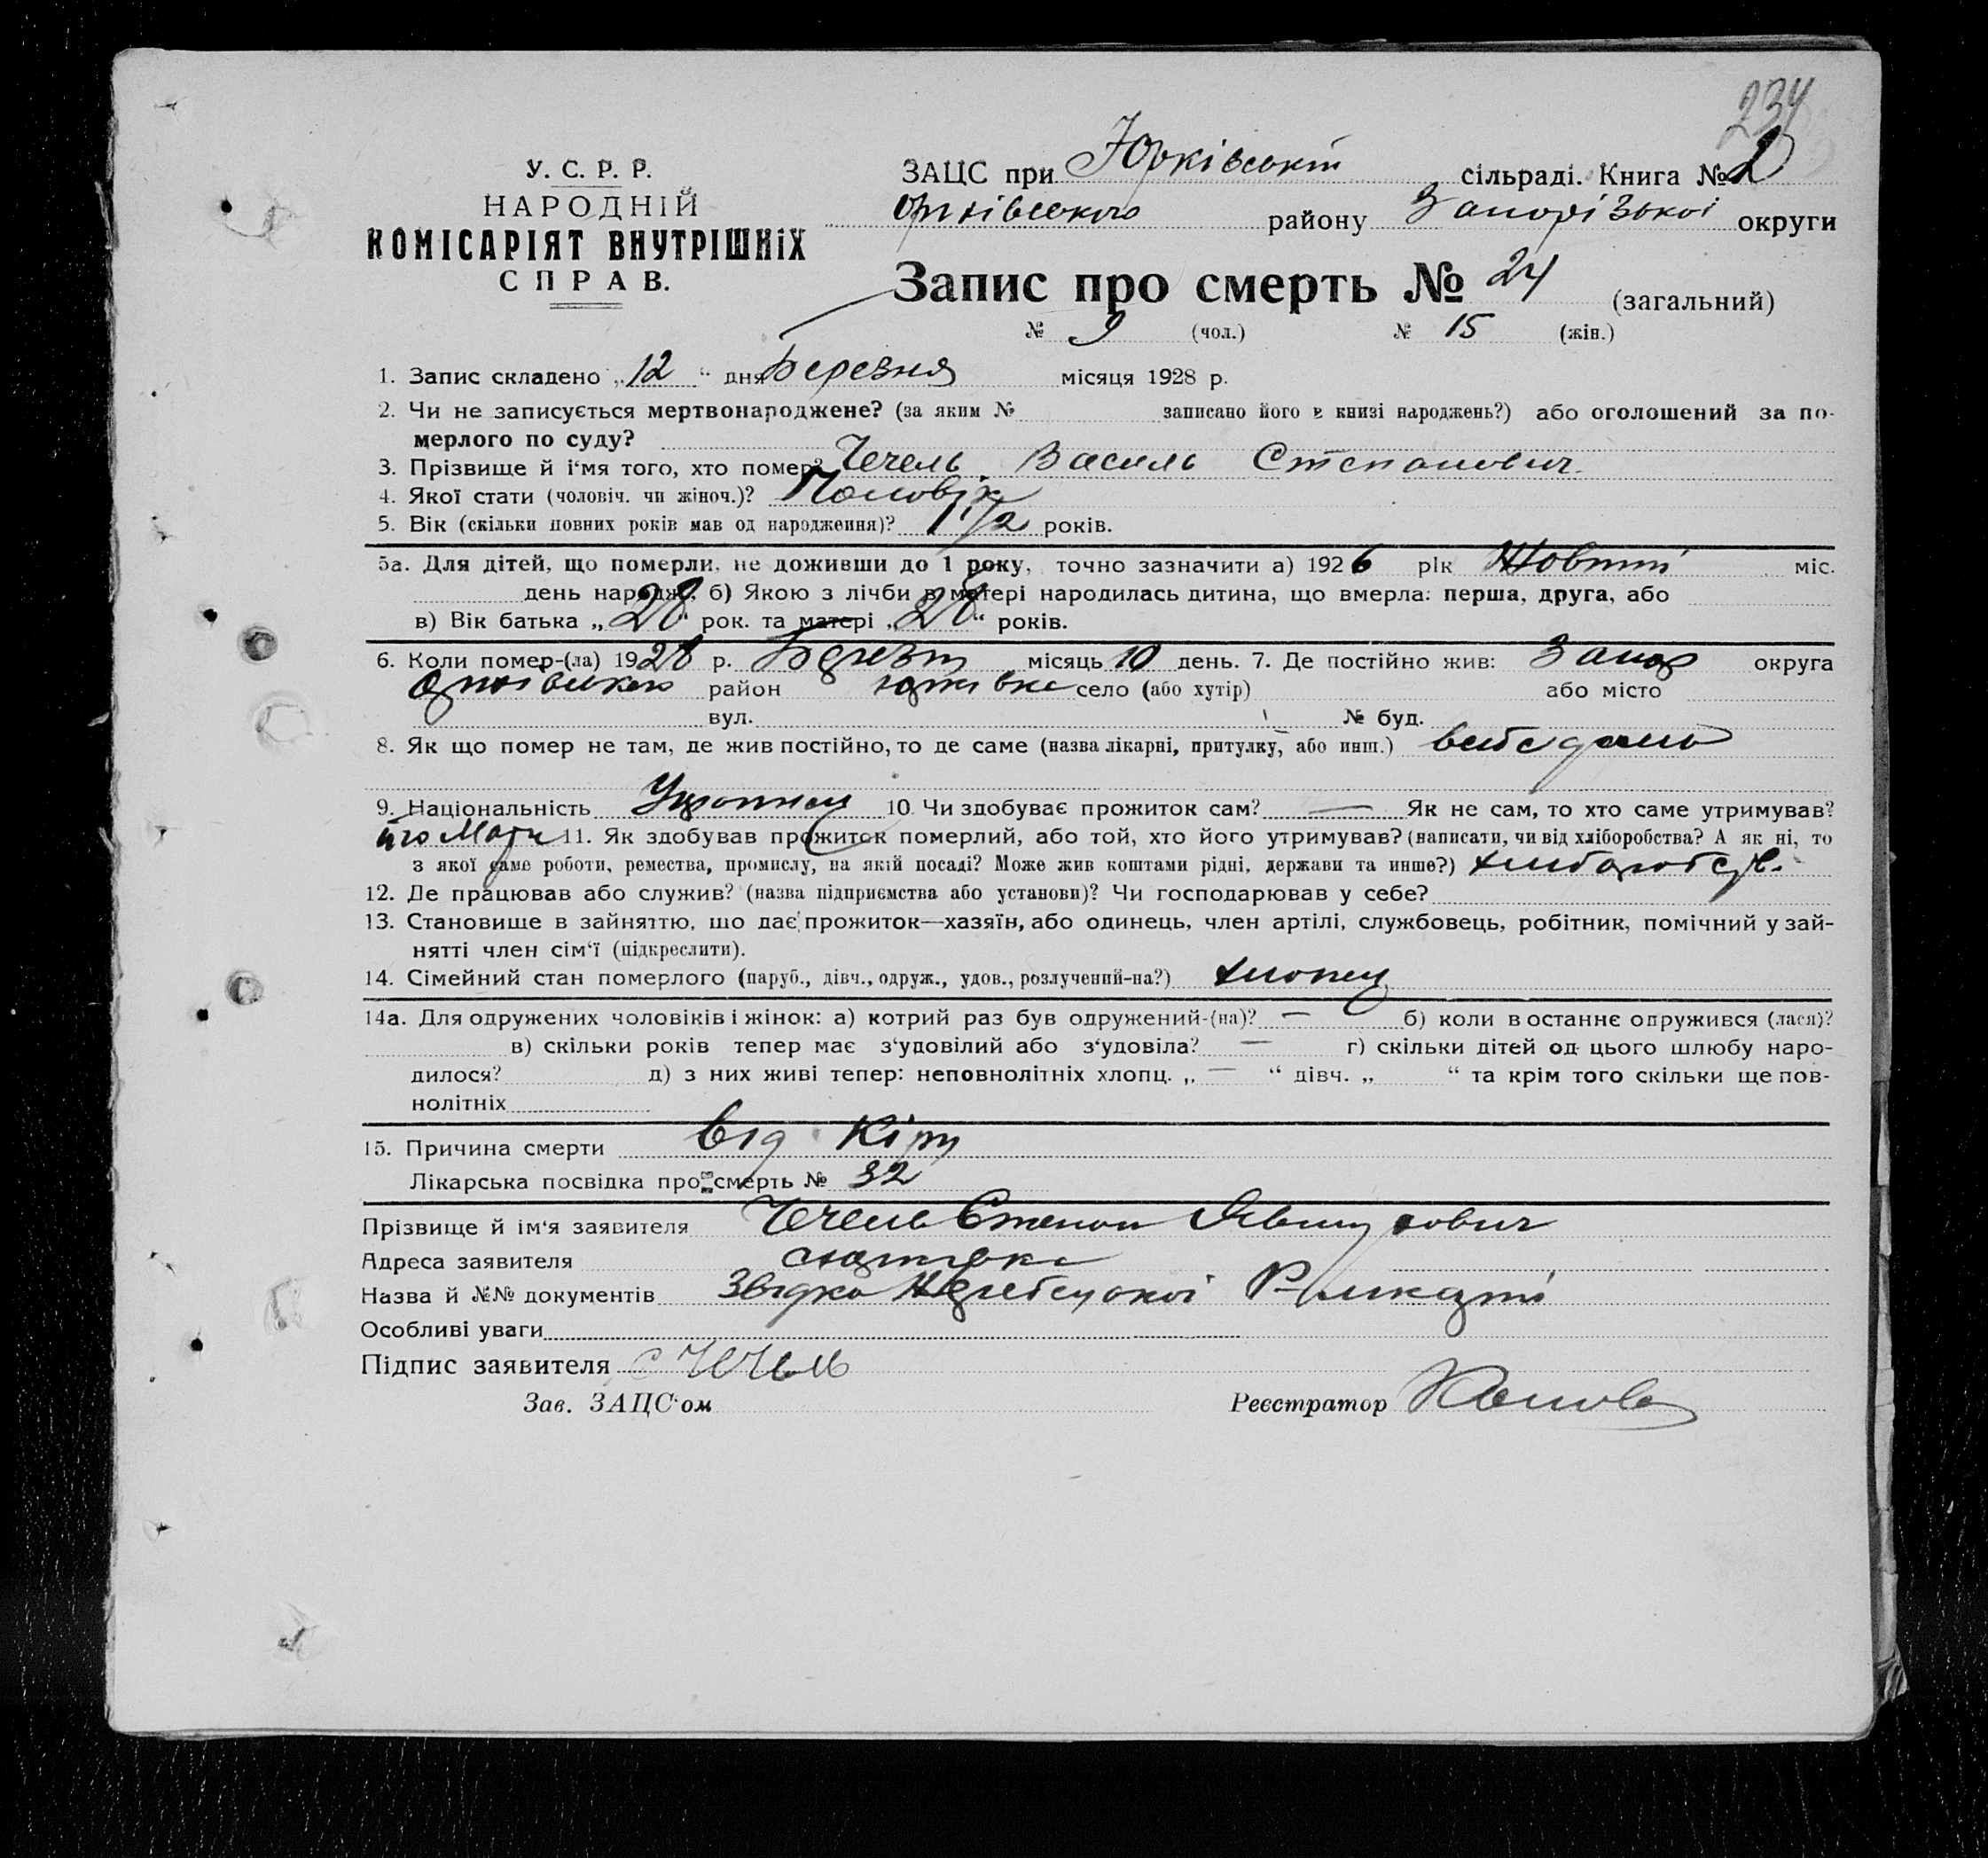 234
У. С. Р. Р.
НАРОДНІЙ
КОМІСАРІЯТ ВНУТРІШНІХ
СПРАВ.
ЗАЦС при Юрківській сільраді. Книга № 2
Оріхівського району Запорізької округи
Запис про смерть № 24 (загальний)
№ 9 (чол.) № 15 (жін.)
1. Запис складено „12“ дня Березня місяця 1928 р.
2. Чи не записується мертвонароджене? (за яким № записано його в книзі народжень?) або оголошений за по-
мерлого по суду?
3. Прізвище й і'мя того, хто помер? Чечель Василь Степанович
4. Якої стати (чоловіч. чи жіноч.)? Чоловік
5. Вік (скільки повних років мав од народження)? 1 1/2 років.
5а. Для дітей, що померли, не доживши до 1 року, точно зазначити а) 1926 рік Жовтні міс.
день народж. б) Якою з лічби в матері народилась дитина, що вмерла: перша, друга, або
в) Вік батька „28“ рок. та матері „28“ років.
6. Коли помер-(ла) 1928 р. Березня місяць 10 день. 7. Де постійно жив: Запор округа
Оріхівського район Юрківка село (або хутір) або місто
вул. № буд.
8. Як що помер не там, де жив постійно, то де саме (назва лікарні, притулку, або инш.)
9. Національність Українец 10. Чи здобуває прожиток сам? — Як не сам, то хто саме утримував?
11. Як здобував прожиток померлий, або той, хто його утримував? (написати, чи від хліборобства? А як ні, то
з якої саме роботи, ремества, промислу, на якій посаді? Може жив коштами рідні, держави та инше?)
12. Де працював або служив? (назва підприємства або установи)? Чи господарював у себе?
13. Становище в зайняттю, що дає прожиток—хазяїн, або одинець, член артілі, службовець, робітник, помічний у зай-
нятті член сім'ї (підкреслити).
14. Сімейний стан померлого (паруб., дівч., одруж., удов., розлучений-на?) хлопец
14а. Для одружених чоловіків і жінок: а) котрий раз був одружений-(на)? — б) коли в останнє одружився (лася)?
в) скільки років тепер має з'удовілий або з'удовіла? — г) скільки дітей од цього шлюбу наро-
дилося? д) з них живі тепер: неповнолітніх хлопц. „ — “ дівч. „ “ та крім того скільки ще пов-
нолітніх
15. Причина смерти від Кіру
Лікарська посвідка про смерть № 32
Прізвище й ім'я заявителя Чечель Степан
Адреса заявителя с Юрківка
Назва й №№ документів
Особливі уваги
Підпис заявителя С Чечель
Зав. ЗАЦС'ом Реєстратор